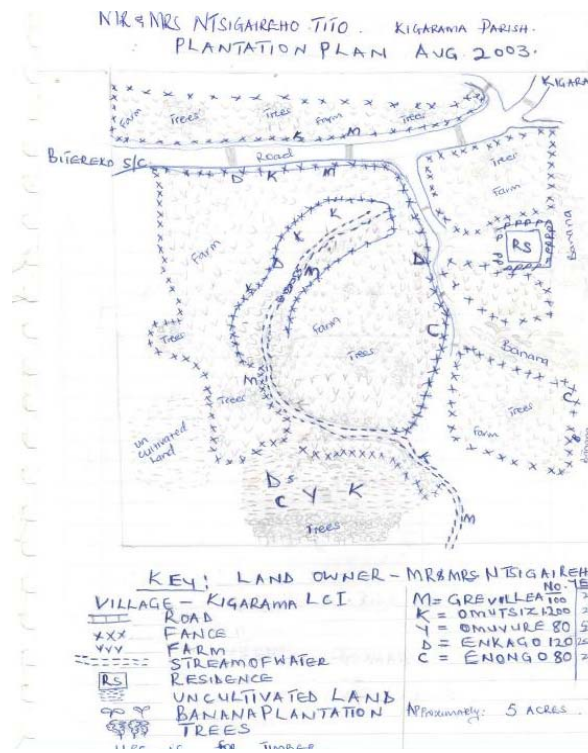 MR & MRS NTSIGAIREHO TITO. KIGARAMA PARISH.
PLANTATION PLAN AUG. 2003.
KIGARA
Farm Trees Trees Farm Trees
K M
BITEREKO S/C
Road
D K M
Trees
Farm
Banana
PPPP
RS
K
K
Farm
D
M
D
Farm
C
Trees
Trees
Banana
M
Trees
C
Trees
Farm
Banana
un
cultivated
Land
K
D s
C Y K
M
Trees
KEY: LAND OWNER - MR&MRS NTSIGAIREH
VILLAGE - KIGARAMA LCI
ROAD
XXX FANCE
VVV FARM
STREAM OF WATER
RS RESIDENCE
UNCULTIVATED LAND
BANANA PLANTATION
TREES
No.
M = GREVOLLEA 100
K = OMUTSIZI 200
Y = OMUVURE 80
D = ENKAGO 120
C = ENONGO 80
Approximately: 5 ACRES.
for TIMBER